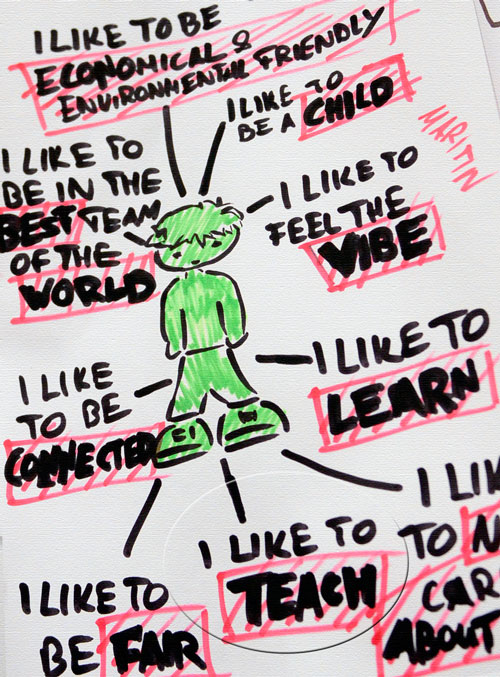 I LIKE TO BE
ECONOMICAL &
ENVIRONMENTAL FRIENDLY
I LIKE TO
BE A CHILD
MARTIN
I LIKE TO
BE IN THE
BEST TEAM
OF THE
WORLD
I LIKE TO
FEEL THE
VIBE
I LIKE TO
LEARN
I LIKE
TO BE
CONNECTED
I LIKE TO
TEACH
I LIKE TO
BE FAIR
I LIK
TO N
CAR
ABOUT